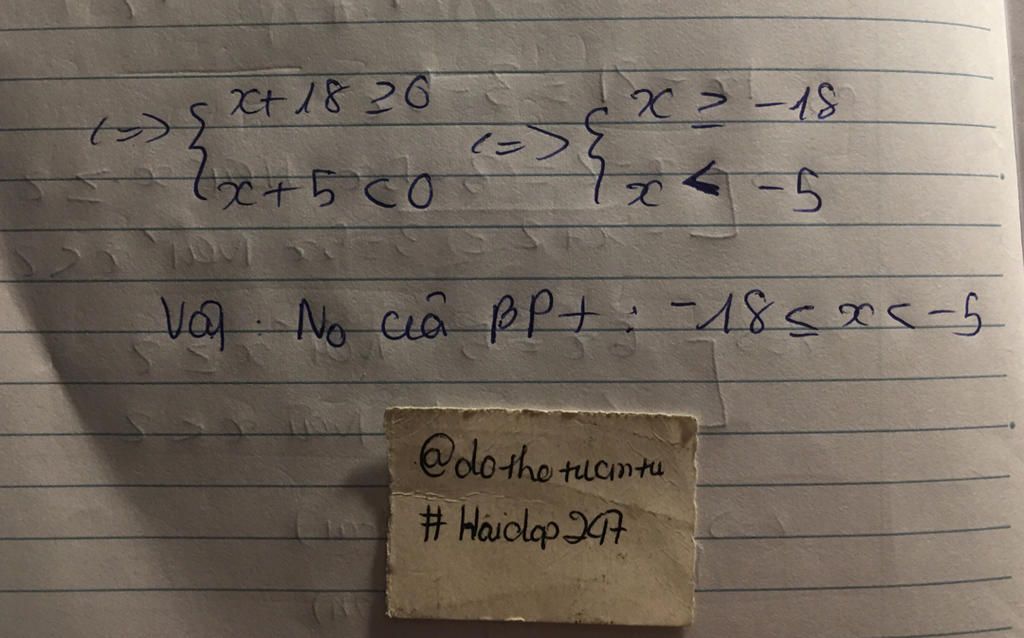 <=> { x + 18 ≥ 0 <=> { x ≥ -18
x + 5 < 0 x < -5
Vậy : No của BPt : -18 ≤ x < -5
@dothetuantu
#Hoidap247